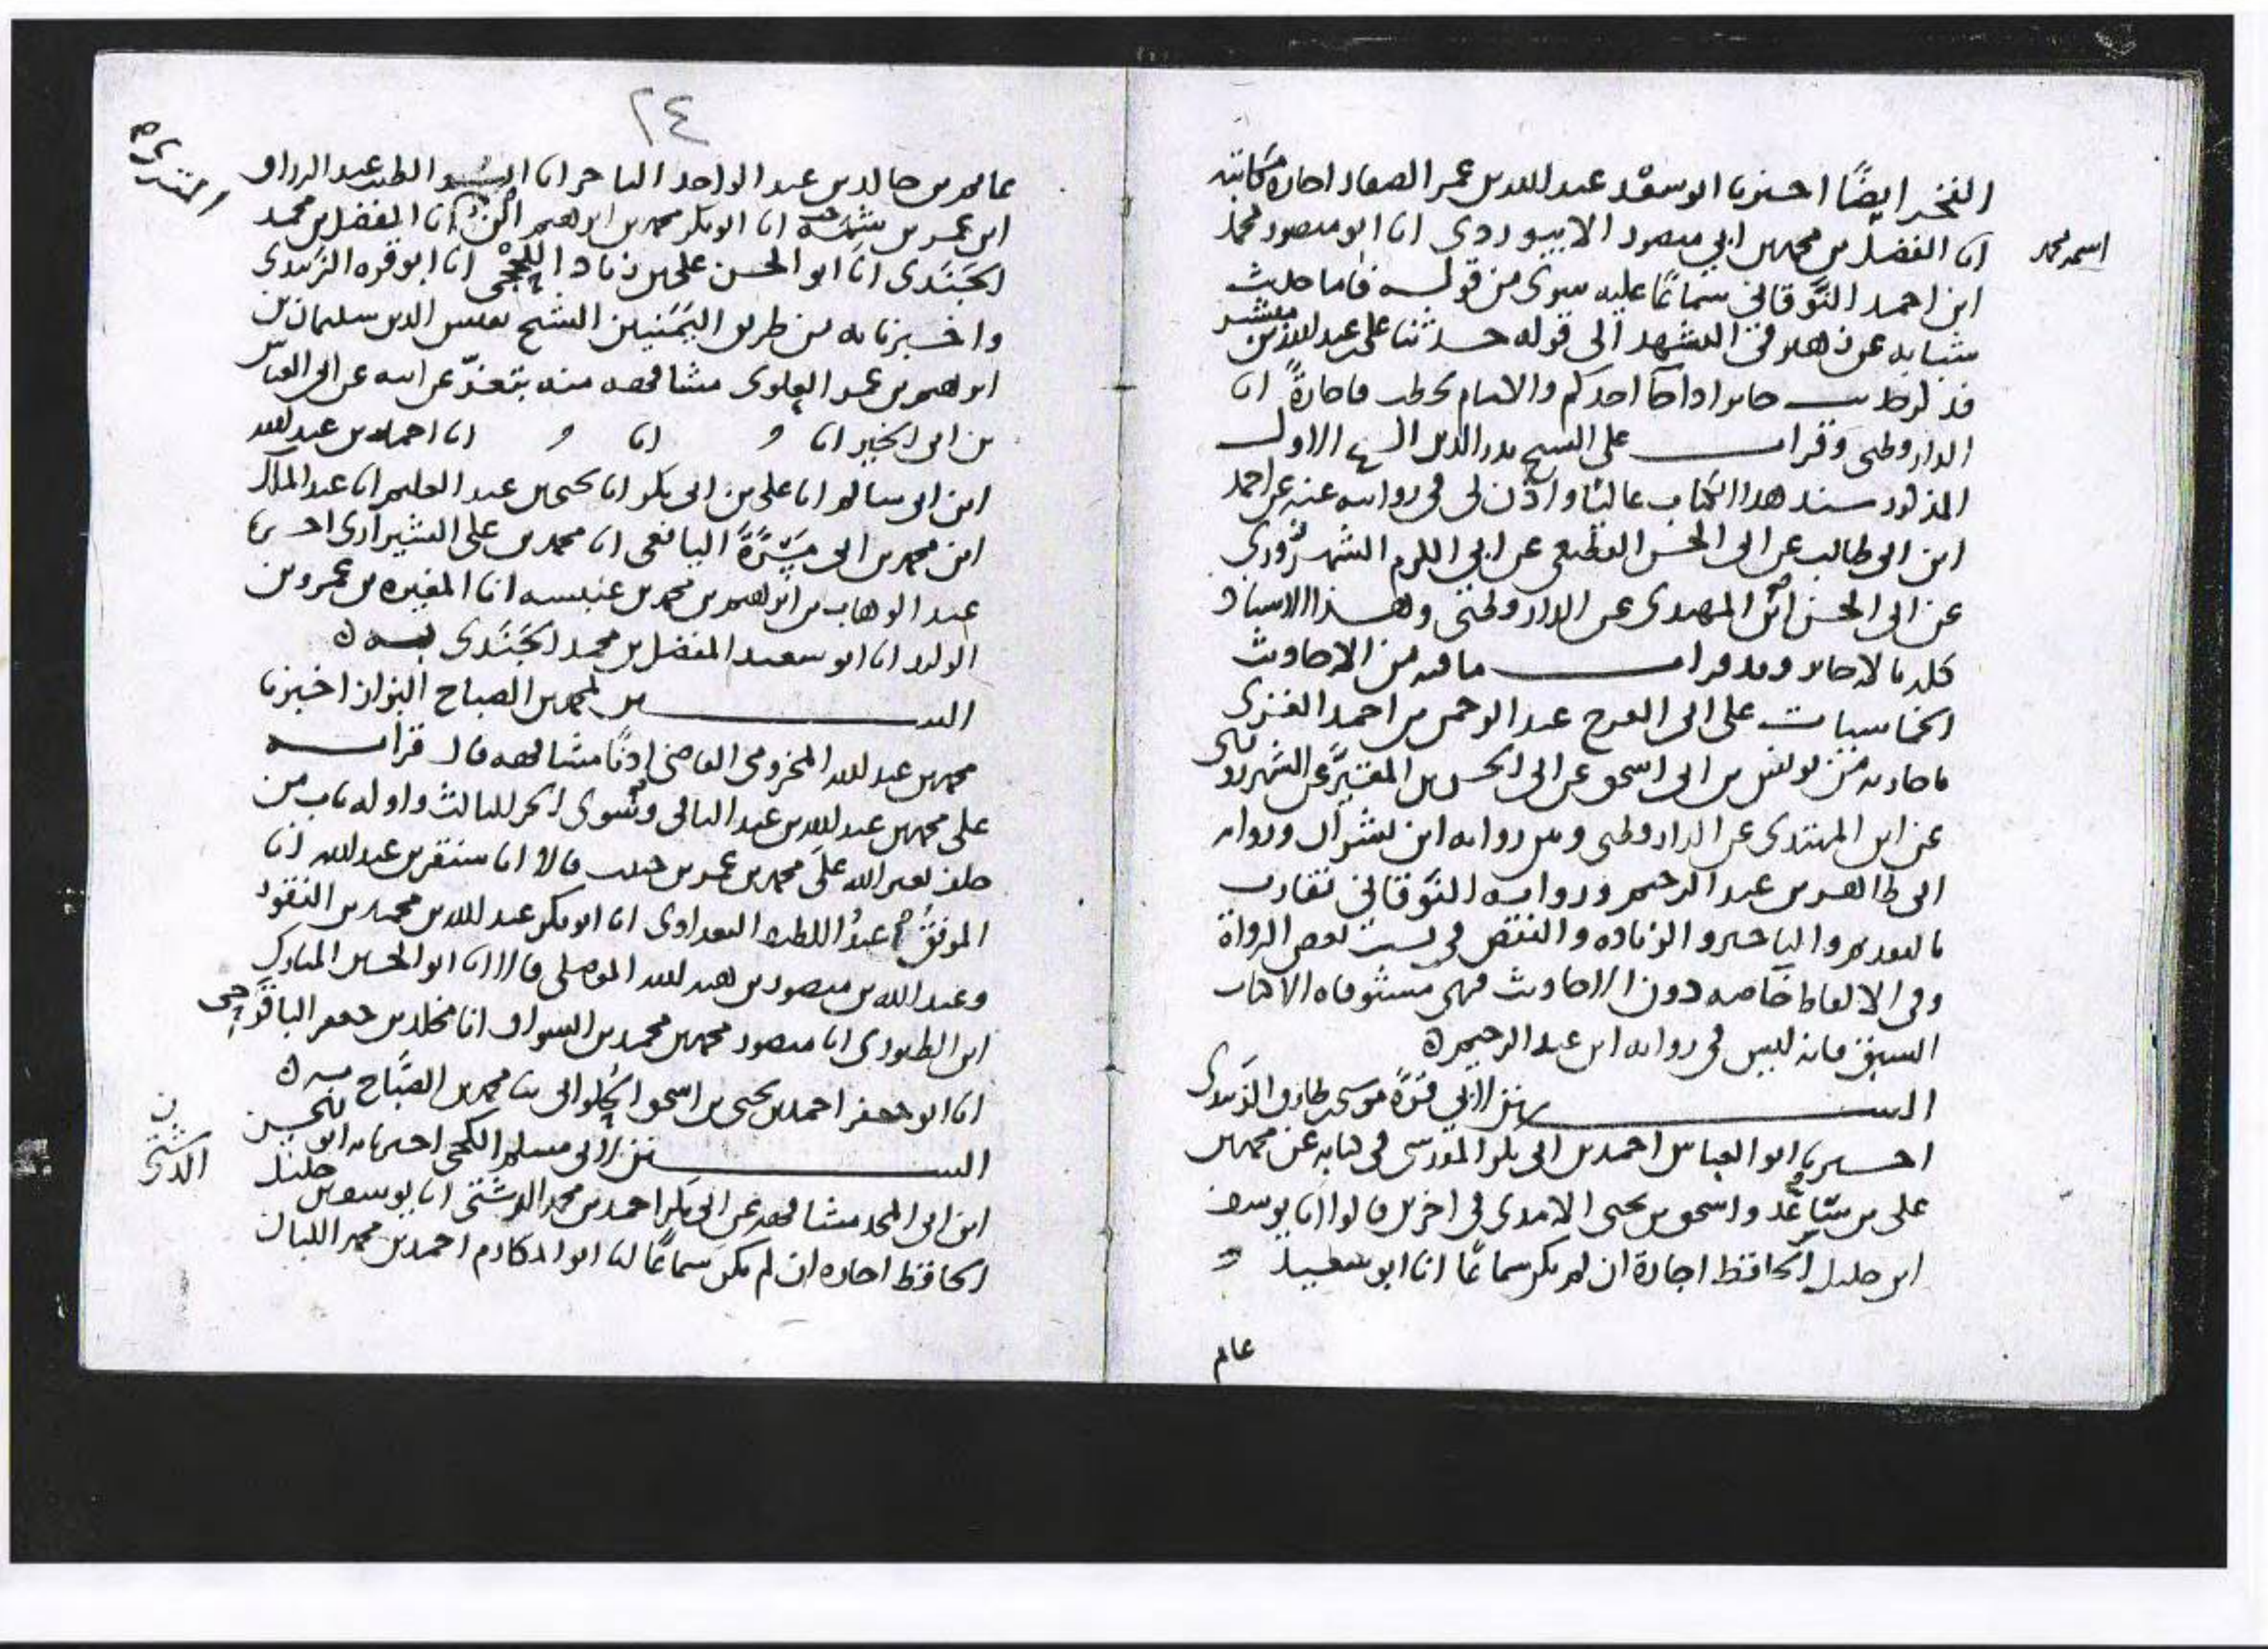 الفخر ايضًا اخبرنا ابو سعْد عبد الله بن عمر الصفار اجازة مكاتبة
انا الفضل بن محمد بن ابي منصور الابيوردى انا ابو منصور محمد
اسمه محمد
ابن احمد النَّوقاني سماعًا عليه سوى من قوله فاما حديث
شبابه عن ذهله في التشهد الى قوله حدثنا على بن عبد الله بن مبشر
فذكر حديث جابر اذا جا احدكم والامام يخطب فاجازةً انا
الدارقطنى وقرات على الشيخ بدر الدين الاول
المذكور سند هذا الكتاب عاليًا واذن لى فى روايته عنه عن احمد
ابن ابى طالب عن ابى الحسن القطيعى عن ابى الكرم الشهرزورى
عن ابى الحسن ابن المهتدى عن الدارقطنى وهذا الاسناد
كله بالاجازة وقد قرات ما فيه من الاحاديث
الخماسيات على ابى الفرج عبد الرحمن بن احمد الغزى
باجازته من يونس بن ابى اسحق عن ابى الحسن بن المقيَّر عن الشهرزورى
عن ابن المهتدى عن الدارقطنى وبين رواية ابن بشران ورواية
ابى طاهر بن عبد الرحيم ورواية النَّوقاني تفاوت
بالتقديم والتاخير والزيادة والنقص فى نسب بعض الرواة
وفى الالفاظ خاصة دون الاحاديث فهى مستوفاة الا كتاب
السبق فانه ليس فى رواية ابن عبد الرحيم ه
السنن لابي قرّة موسى بن طارق الزَّبيدى
اخبرنا ابو العباس احمد بن ابى بكر المقدسى فى كتابه عن محمد بن
على بن ساعد واسحق بن يحيى الامدى فى اخرين قالوا انا يوسف
ابن خليل الحافظ اجازة ان لم يكن سماعًا انا ابو سعيد
عام
٢٤
عامر بن خالد بن عبد الواحد التاجر انا ابو الطيب عبد الرزاق
ابن عمر بن شمه انا ابو بكر محمد بن ابرهيم ابن المقرى انا المفضل بن محمد
المقرى ه
الجَنَدى انا ابو الحسن على بن زياد اللحْجى انا ابو قره الزَّبيدى
واخبرنا به من طريق اليَمَنيين الشيخ نفيس الدين سليمان بن
ابرهيم بن عمر العلوى مشافهه منه بتعزّ عن ابيه عن ابى العباس
بن ابى الخير انا و انا و انا احمد بن عبد الله
ابن ابى سالم انا على بن ابى بكر انا يحيى بن عبد العليم انا عبد الملك
ابن محمد بن ابى مَيْسَرَةَ اليافعى انا محمد بن على الشيرازى اخبرنا
عبد الوهاب بن ابرهيم بن محمد بن عنبسه انا المغيره بن عمرو بن
الوليد انا ابو سعيد المفضل بن محمد الجَنَدى به ه
السنن لمحمد بن الصباح البزاز اخبرنا
محمد بن عبد الله المخزومى القاضى اذنًا مشافهه قال قرات
على محمد بن عبد الله بن عبد الباقى وسوى الجزء الثالث واوله باب من
حلف بغير الله على محمد بن عمر بن حبيب قالا انا سنقر بن عبد الله انا
الموفق عبدُ اللطيف البغدادى انا ابو بكر عبد الله بن محمد بن النقور
وعبد الله بن منصور بن هبة الله الموصلى قالا انا ابو الحسين المبارك
ابن الطيورى انا منصور محمد بن محمد بن السواق انا مخلد بن جعفر الباقَرحى
انا ابو جعفر احمد بن يحيى بن اسحق الحلوانى ثنا محمد بن الصَّباح به ه
السنن لابى مسلم الكجى اخبرنا به ابو بكر بن حسين
ابن ابى المجد مشافهه عن ابى بكر احمد بن محمد الدشتى انا يوسف بن خليل
الدشتى
الحافظ اجازه ان لم يكن سماعًا انا ابو المكارم احمد بن محمد اللبان